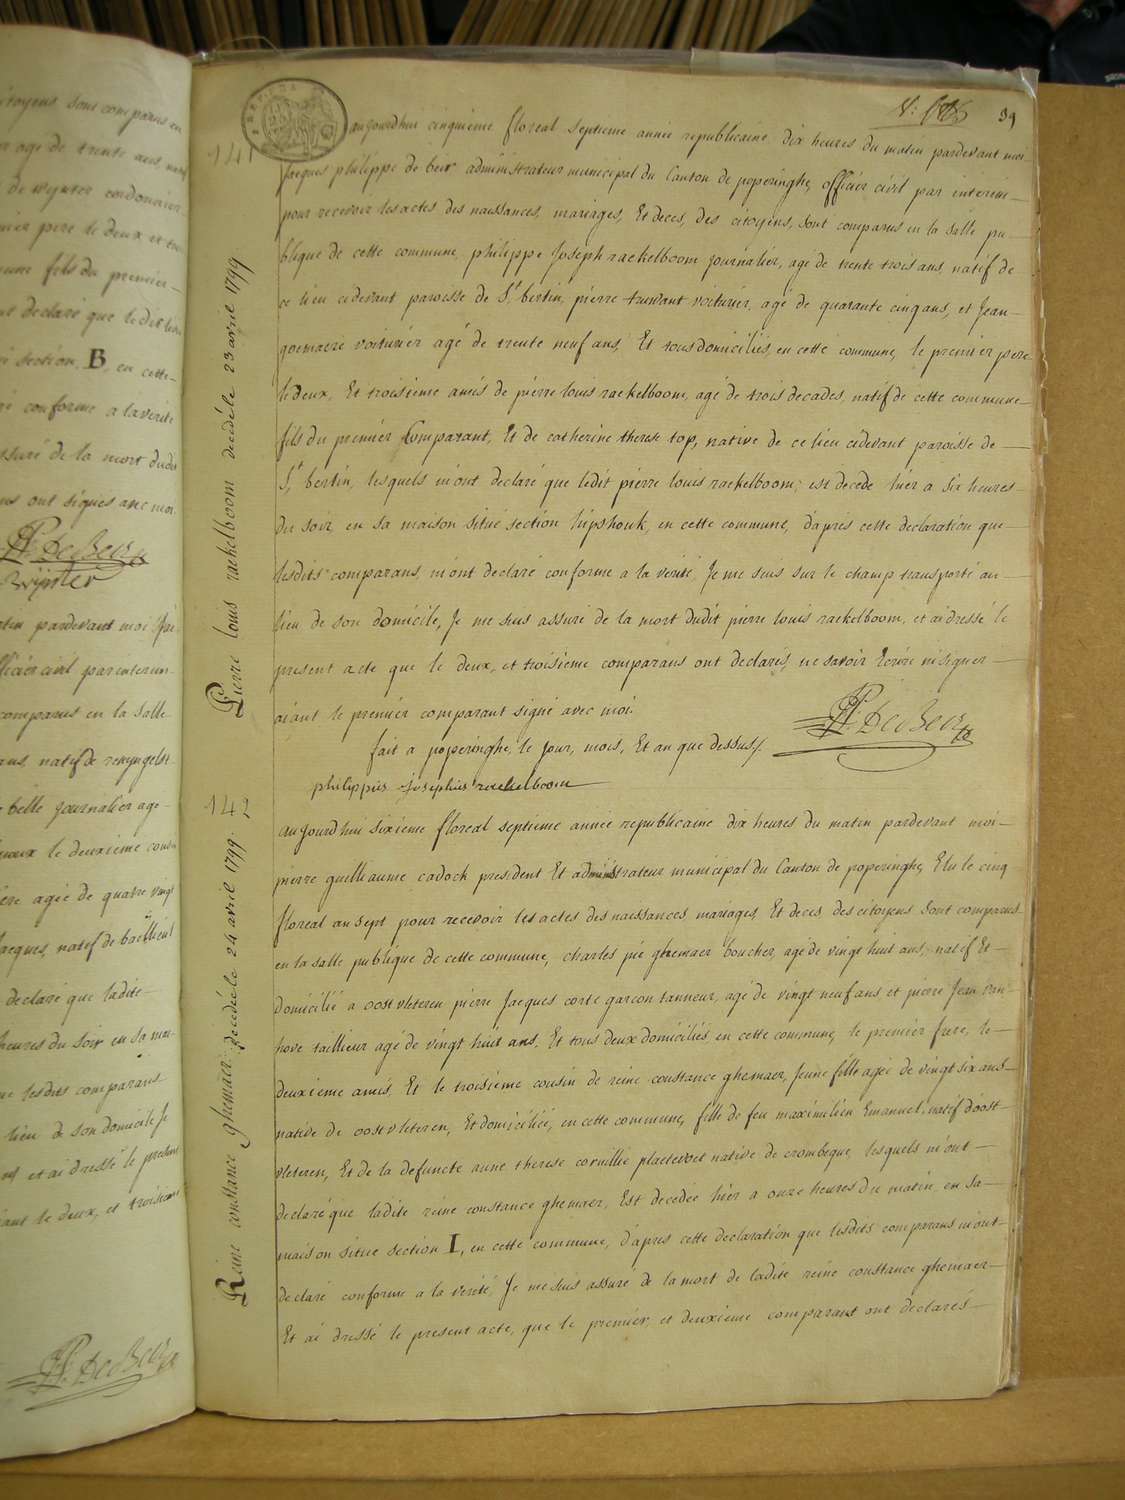 citoyens sont comparus en
agé de trente ans natif
de wynter cordonnier
pere le deux et
fils du premier
declaré que ledit
section B, en cette
conforme a la verité
assuré de la mort dudit
ont signés avec moi
DeBeir
pardevant moi
officier civil par interim
comparus en la salle
ans, natif de reningelst
belle journalier agé
le deuxieme
agée de quatre vingt
jacques, natif de bailleul
declaré que ladite
heures du soir en sa mai
lesdits comparans
lieu de son domicile Je
et ai dressé le present
le deux, et troisieme
DeBeir
39
141
aujourdhui cinquieme floreal septieme année republicaine dix heures du matin pardevant moi
Jacques philippe de beir administrateur municipal du Canton de poperinghe, officier civil par interim
pour recevoir les actes des naissances, mariages, Et deces, des citoyens, sont comparus en la salle pu-
blique de cette commune, philippe Joseph raekelboom journalier, agé de trente trois ans, natif de
ce lieu cidevant paroisse de St bertin, pierre truwant voiturier, agé de quarante cinq ans, et Jean
goemaere voiturier agé de trente neuf ans, Et tous domiciliés, en cette commune, le premier pere
le deux, Et troisieme amis de pierre louis raekelboom, agé de trois decades, natif de cette commune
fils du premier Comparant, Et de catherine therese top, native de ce lieu cidevant paroisse de
St bertin, lesquels m'ont declaré que ledit pierre louis raekelboom, est decedé hier a six heures
du soir, en sa maison situé section hipshouk, en cette commune, d'après cette declaration que
lesdits comparans, m'ont declaré conforme a la verité, Je me suis sur le champ transporté au
lieu de son domicile, Je me suis assuré de la mort dudit pierre louis raekelboom, et ai dressé le
present acte que le deux, et troisieme comparans ont declarés, ne savoir Ecrire ni signer
aiant le premier comparant signé avec moi.
fait a poperinghe, le jour, mois, Et an que dessus /.
DeBeir
philippus josephus raekelboom
Pierre louis raekelboom décédé le 23 avril 1799
142
aujourdhui sixieme floreal septieme année republicaine dix heures du matin pardevant moi
pierre guilliaume cadock president Et administrateur municipal du Canton de poperinghe, Elu le cinq
floreal an sept pour recevoir les actes des naissances mariages, Et deces, des citoyens sont comparus
en la salle publique de cette commune, charles pié ghemaer boucher, agé de vingt huit ans, natif Et
domicilié a oostvleteren pierre Jacques corte garcon tanneur, agé de vingt neuf ans et pierre Jean van
hove taillieur agé de vingt huit ans, Et tous deux domiciliés, en cette commune, le premier frere, le
deuxieme amis, Et le troisieme cousin de reine constance ghemaer, Jeune fille agée de vingt six ans
native de oostvleteren, Et domiciliée, en cette commune, fille de feu maximilien Emanuel, natif d'oost
vleteren, Et de la defuncte anne therese cornillie plaetevoet native de crombeque, lesquels m'ont
declaré que ladite reine constance ghemaer, Est decedée hier a onze heures du matin, en sa
maison situé section I, en cette commune, d'après cette declaration que lesdits comparans m'ont
declaré conforme a la verité, Je me suis assuré de la mort de ladite reine constance ghemaer
Et ai dressé le present acte, que le premier, et deuxieme comparant ont declarés
Reine constance ghemaer décédée le 24 avril 1799.